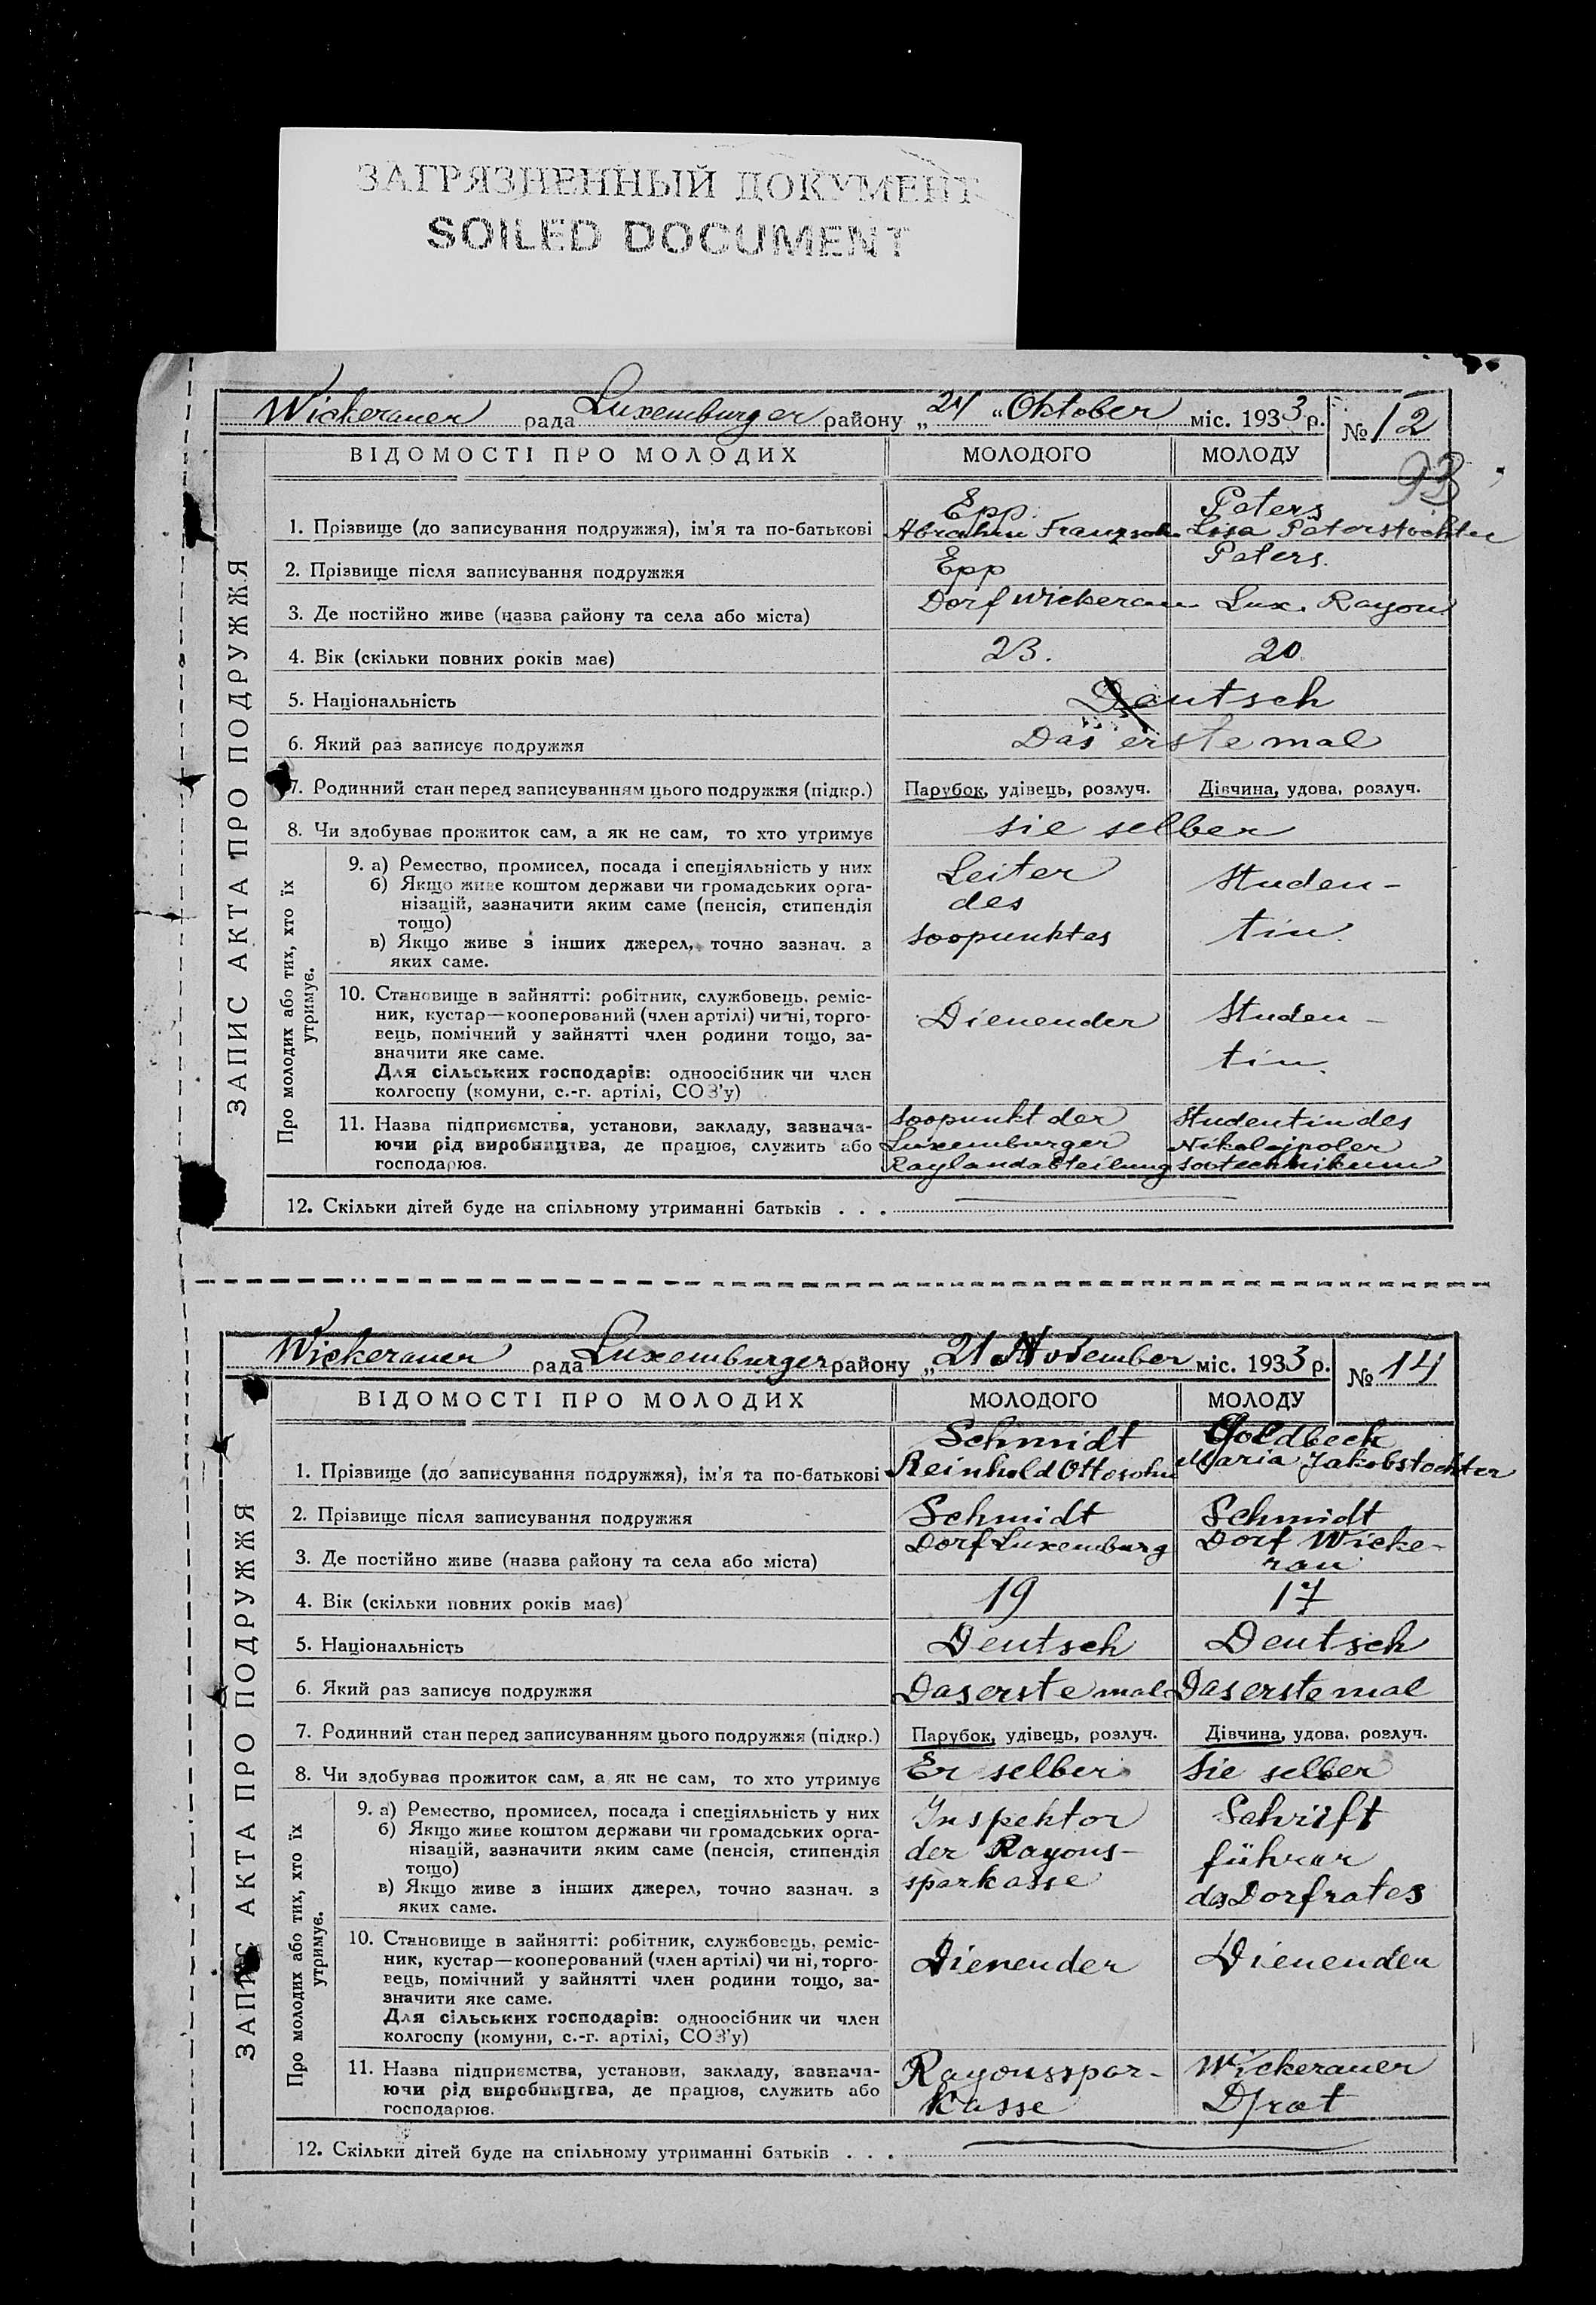 ЗАГРЯЗНЕННЫЙ ДОКУМЕНТ
SOILED DOCUMENT
Wickerauer рада Luxemburger району „24 “ Oktober міс. 1933 р. № 12
93
ВІДОМОСТІ ПРО МОЛОДИХ МОЛОДОГО МОЛОДУ
ЗАПИС АКТА ПРО ПОДРУЖЖЯ
Epp Peters
1. Прізвище (до записування подружжя), ім’я та по-батькові Abrahm Franzsohn Lisa Peterstochter
2. Прізвище після записування подружжя Epp Peters.
3. Де постійно живе (назва району та села або міста) Dorf Wickerau Lux. Rayon
4. Вік (скільки повних років має) 23. 20
5. Національність Deutsch
6. Який раз записує подружжя Das erste mal
7. Родинний стан перед записуванням цього подружжя (підкр.) Парубок, удівець, розлуч. Дівчина, удова, розлуч.
8. Чи здобуває прожиток сам, а як не сам, то хто утримує sie selber
Про молодих або тих, хто їх
утримує.
9. а) Ремество, промисел, посада і спеціяльність у них Leiter
б) Якщо живе коштом держави чи громадських орга- des Studen-
нізацій, зазначити яким саме (пенсія, стипендія
тощо) soopunktes tin.
в) Якщо живе з інших джерел, точно зазнач. з
яких саме.
10. Становище в зайнятті: робітник, службовець, реміс-
ник, кустар—кооперований (член артілі) чи ні, торго- Dienender Studen-
вець, помічний у зайнятті член родини тощо, за-
значити яке саме. tin.
Для сільських господарів: одноосібник чи член
колгоспу (комуни, с.-г. артілі, СОЗ’у)
11. Назва підприємства, установи, закладу, зазнача- Soopunkt der Studentin des
ючи рід виробництва, де працює, служить або Luxemburger Nikolajpoler
господарює. Raylandabteilung sootechnikum
12. Скільки дітей буде на спільному утриманні батьків . . .
Wickerauer рада Luxemburger району „21 November міс. 1933 р. № 14
ВІДОМОСТІ ПРО МОЛОДИХ МОЛОДОГО МОЛОДУ
ЗАПИС АКТА ПРО ПОДРУЖЖЯ
Schmidt Goldbeck
1. Прізвище (до записування подружжя), ім’я та по-батькові Reinhold Ottosohn Maria Jakobstochter
2. Прізвище після записування подружжя Schmidt Schmidt
3. Де постійно живе (назва району та села або міста) Dorf Luxemburg Dorf Wicke-
rau
4. Вік (скільки повних років має) 19 17
5. Національність Deutsch Deutsch
6. Який раз записує подружжя Das erste mal Das erste mal
7. Родинний стан перед записуванням цього подружжя (підкр.) Парубок, удівець, розлуч. Дівчина, удова, розлуч.
8. Чи здобуває прожиток сам, а як не сам, то хто утримує Er selber Sie selber
Про молодих або тих, хто їх
утримує.
9. а) Ремество, промисел, посада і спеціяльність у них Inspektor Schrift
б) Якщо живе коштом держави чи громадських орга- der Rayons- führer
нізацій, зазначити яким саме (пенсія, стипендія
тощо) sparkasse des Dorfrates
в) Якщо живе з інших джерел, точно зазнач. з
яких саме.
10. Становище в зайнятті: робітник, службовець, реміс-
ник, кустар—кооперований (член артілі) чи ні, торго- Dienender Dienender
вець, помічний у зайнятті член родини тощо, за-
значити яке саме.
Для сільських господарів: одноосібник чи член
колгоспу (комуни, с.-г. артілі, СОЗ’у)
11. Назва підприємства, установи, закладу, зазнача- Rayonsspar- Wickerauer
ючи рід виробництва, де працює, служить або Kasse D/rat
господарює.
12. Скільки дітей буде на спільному утриманні батьків . . .